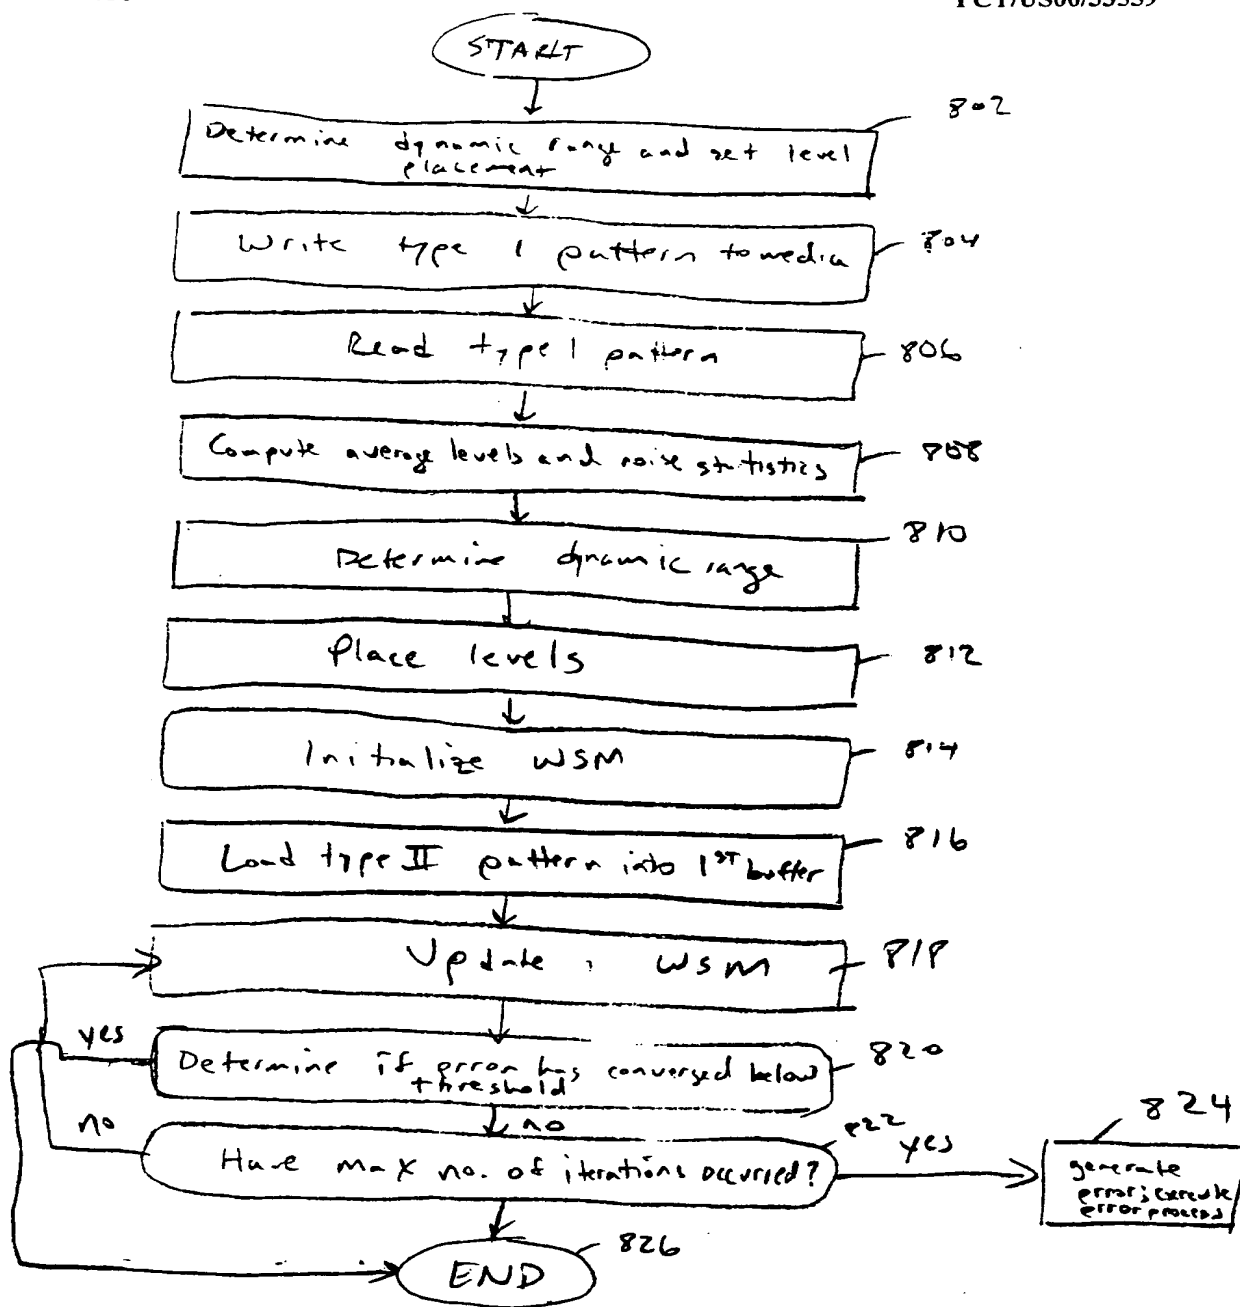 START
802
Determine dynamic range and set level
placement
Write type 1 pattern to media
804
Read type 1 pattern
806
Compute average levels and noise statistics
808
810
Determine dynamic range
Place levels
812
Initialize WSM
814
Load type II pattern into 1ST buffer
816
Update WSM
818
yes
Determine if error has converged below
threshold
820
no
no
Have max no. of iterations occurred?
822
yes
824
generate
error; execute
error process
END
826